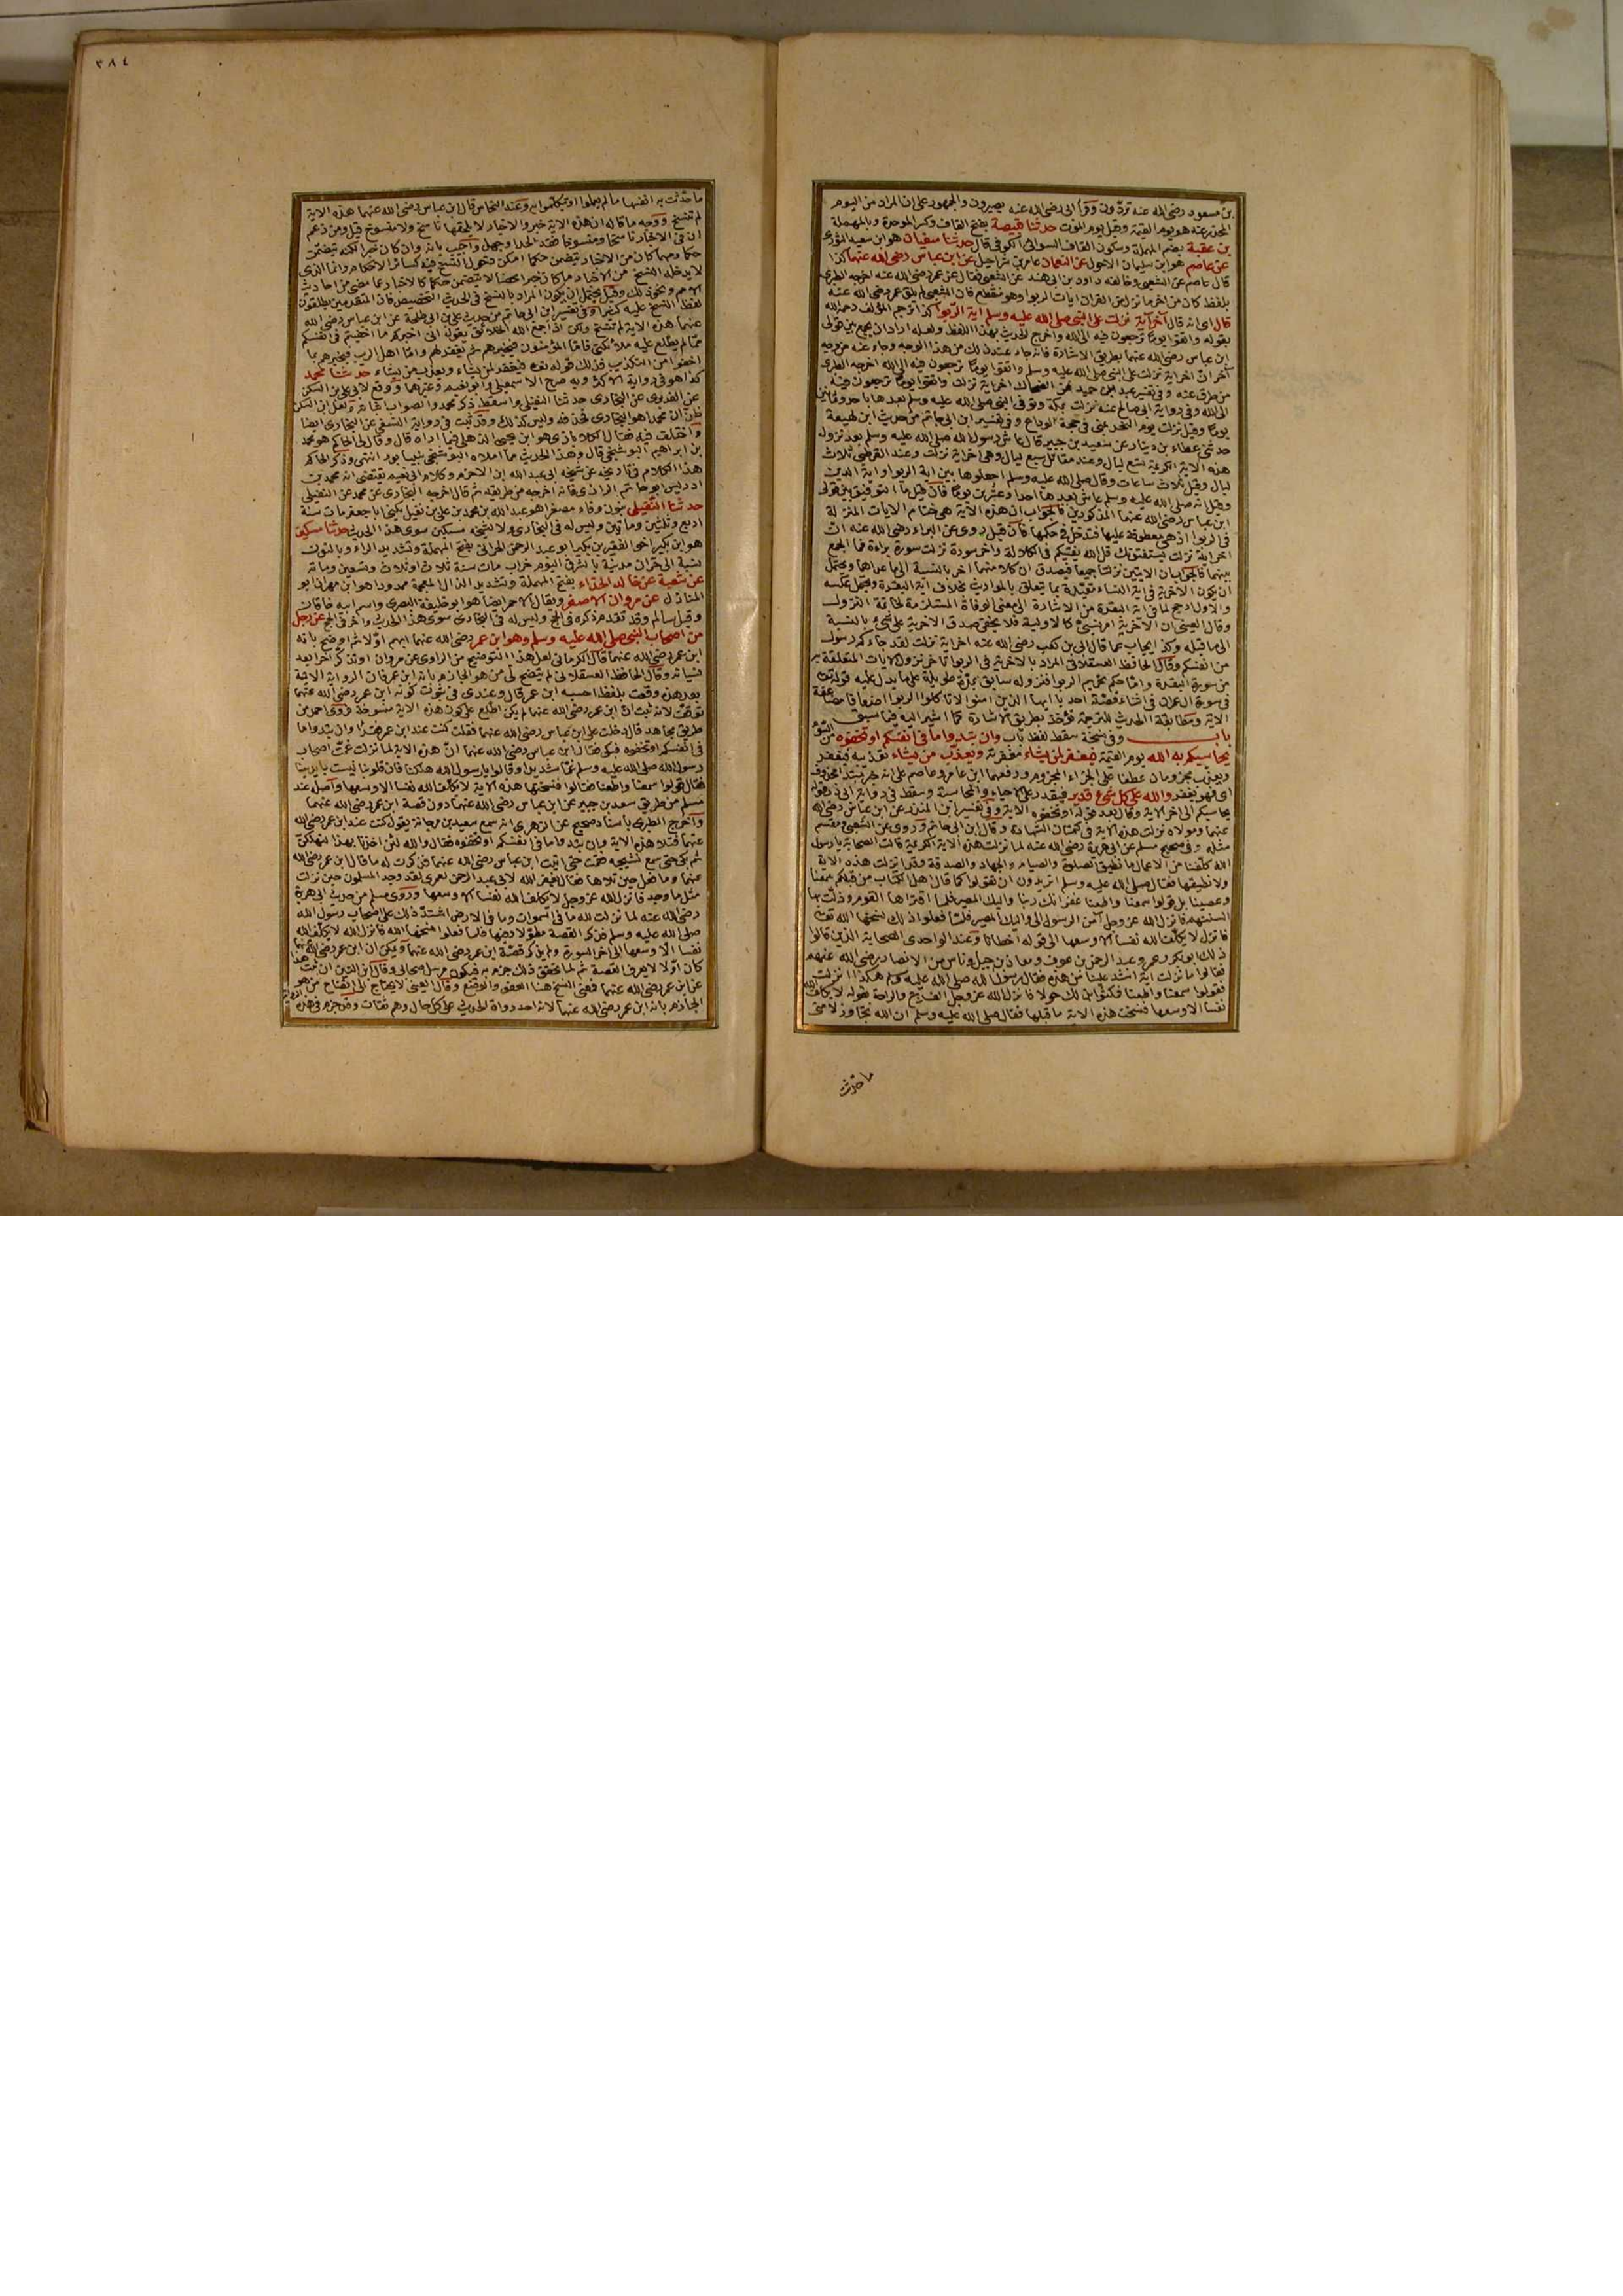 بن مسعود رضي الله عنه تردون وقرأ ابي رضي الله عنه يصيرون والجمهور على ان المراد من اليوم
المحذر عنه هو يوم القيمة وقيل يوم الموت حدثنا قبيصة بفتح القاف وكسر الموحدة وبالمهملة
بن عقبة بضم المهملة وسكون القاف السوائي الكوفي قال حدثنا سفيان هو ابن سعيد الثوري
عن عاصم هو ابن سليمان الاحول عن الشعبي عامر بن شراحيل عن ابن عباس رضي الله عنهما كذا
قال عاصم عن الشعبي وخالفه داود بن ابي هند عن الشعبي فقال عن عمر رضي الله عنه اخرجه الطبري
بلفظ كان من اخر ما نزل من القران ايات الربوا وهو منقطع فان الشعبي لم يلق عمر رضي الله عنه
قال اي انه قال آخر آية نزلت على النبي صلى الله عليه وسلم اية الربوا كذا ترجم المؤلف رحمه الله
بقوله واتقوا يوما ترجعون فيه الى الله واخرج الحديث بهذا اللفظ ولعله اراد ان يجمع بين قولي
ابن عباس رضي الله عنهما بطريق الاشارة فانه جاء عنه ذلك من هذا الوجه وجاء عنه من وجه
آخر ان اخر اية نزلت على النبي صلى الله عليه وسلم واتقوا يوما ترجعون فيه الى الله اخرجه الطبري
من طرق عنه وفي تفسير عبد بن حميد عن الضحاك اخر اية نزلت واتقوا يوما ترجعون فيه
الى الله وفي رواية ابي صالح عنه نزلت بمكة وتوفي النبي صلى الله عليه وسلم بعدها باحد وثمانين
يوما وقيل نزلت يوم النحر بمنى في حجة الوداع وفي تفسير ابن ابي حاتم من حديث ابن لهيعة
حدثني عطاء بن دينار عن سعيد بن جبير قال عاش رسول الله صلى الله عليه وسلم بعد نزول
هذه الاية الكريمة تسع ليال وعند مقاتل سبع ليال وهي اخر اية نزلت وعند القرطبي ثلاث
ليال وقيل ثلاث ساعات وقال صلى الله عليه وسلم اجعلوها بين اية الربوا واية الدين
وقيل انه صلى الله عليه وسلم عاش بعدها احدا وعشرين يوما فان قيل ما التوفيق بين قولي
ابن عباس رضي الله عنهما المذكورين فالجواب ان هذه الاية هي ختام الايات المنزلة
في الربوا اذ هي معطوفة عليها فتدخل في حكمها فان قيل روي عن البراء رضي الله عنه ان
اخر اية نزلت يستفتونك قل الله يفتيكم في الكلالة واخر سورة نزلت سورة براءة فما الجمع
بينهما فالجواب بان الايتين نزلتا جميعا فيصدق ان كلا منهما اخر بالنسبة الى ما عداها ويحتمل
ان يكون الاخرية في اية النساء مقيدة بما يتعلق بالمواريث بخلاف اية البقرة ويحتمل عكسه
والاول ارجح لما في اية البقرة من الاشارة الى معنى الوفاة المستلزمة لخاتمة النزول
وقال العيني ان الآخرية امر نسبي كالاولية فلا يخفى صدق الاخرية على شيء بالنسبة
الى ما قبله وكذا يجاب عما قال ابي بن كعب رضي الله عنه اخر اية نزلت لقد جاءكم رسول
من انفسكم وقال الحافظ العسقلاني المراد بالاخرية في الربوا تاخر نزول الآيات المتعلقة به
من سورة البقرة واما حكم تحريم الربوا فنزوله سابق بمدة طويلة على ما يدل عليه قوله تعالى
في سورة ال عمران في اثناء قصة احد يا ايها الذين امنوا لا تاكلوا الربوا اضعافا مضاعفة
الاية ومطابقة الحديث للترجمة تؤخذ بطريق الاشارة كما اشير اليه فيما سبق
باب وفي نسخة سقط لفظ باب وان تبدوا ما في انفسكم او تخفوه من السوء
يحاسبكم به الله يوم القيمة فيغفر لمن يشاء مغفرته ويعذب من يشاء تعذيبه فيغفر
ويعذب مجزومان عطفا على الجزاء المجزوم ورفعهما ابن عامر وعاصم على انه خبر مبتدأ محذوف
اي فهو يغفر والله على كل شيء قدير فيقدر على الاحياء والمحاسبة وسقط في رواية ابي ذر قوله
يحاسبكم الى اخر الاية وقال بعد قوله او تخفوه الاية وفي تفسير ابن المنذر عن ابن عباس رضي الله
عنهما ومولاه نزلت هذه الاية في كتمان الشهادة وقال ابن ابي حاتم وروي عن الشعبي ومقسم
مثله وفي صحيح مسلم عن ابي هريرة رضي الله عنه لما نزلت هذه الاية الكريمة قالت الصحابة يا رسول
الله كلفنا من الاعمال ما نطيق الصلوة والصيام والجهاد والصدقة وقد انزلت هذه الاية
ولا نطيقها فقال صلى الله عليه وسلم اتريدون ان تقولوا كما قال اهل الكتاب من قبلكم سمعنا
وعصينا بل قولوا سمعنا واطعنا غفرانك ربنا واليك المصير فلما اقترأها القوم وذلت بها
السنتهم فانزل الله عز وجل آمن الرسول الى واليك المصير فلما فعلوا ذلك نسخها الله تعالى
فانزل لا يكلف الله نفسا الا وسعها الى قوله اخطانا وعند الواحدي الصحابة الذين قالوا
ذلك ابو بكر وعمر وعبد الرحمن بن عوف ومعاذ بن جبل وناس من الانصار رضي الله عنهم
فقالوا ما نزلت اية اشد علينا من هذه فقال رسول الله صلى الله عليه وسلم هكذا انزلت
فقولوا سمعنا واطعنا فمكثوا بذلك حولا فانزل الله عز وجل الفرج والراحة بقوله لا يكلف الله
نفسا الا وسعها فنسخت هذه الاية ما قبلها فقال صلى الله عليه وسلم ان الله تجاوز لامتي
ما حدثت
٣٨٤
ما حدثت به انفسها ما لم يعملوا او يتكلموا به وعند النحاس قال ابن عباس رضي الله عنهما هذه الاية
لم تنسخ ووجه ما قاله ان هذه الاية خبر والاخبار لا يلحقها ناسخ ولا منسوخ قيل ومن زعم
ان في الاخبار ناسخا ومنسوخا فقد الحد او جهل واجيب بانه وان كان خبرا لكنه يتضمن
حكما ومهما كان من الاخبار يتضمن حكما امكن دخول النسخ فيه كسائر الاحكام وانما الذي
لا يدخله النسخ من الاخبار ما كان خبرا محضا لا يتضمن حكما كالاخبار عما مضى من احاديث
الامم ونحو ذلك وقيل يحتمل ان يكون المراد بالنسخ في الحديث التخصيص فان المتقدمين يطلقون
لفظ النسخ عليه كثيرا وفي تفسير ابن ابي حاتم من حديث علي بن ابي طلحة عن ابن عباس رضي الله
عنهما هذه الاية لم تنسخ ولكن اذا جمع الله الخلائق يقول اني اخبركم ما اخفيتم في انفسكم
مما لم يطلع عليه ملائكتي فاما المؤمنون فيخبرهم ثم يغفر لهم واما اهل الريب فيخبرهم بما
اخفوا من التكذيب فذلك قوله تعالى فيغفر لمن يشاء ويعذب من يشاء حدثنا محمد
كذا هو في رواية الاكثر وبه صرح الاسمعيلي وابو نعيم وغيرهما ووقع لابي علي بن السكن
عن الفربري عن البخاري حدثنا النفيلي واسقط ذكر محمد والصواب اثباته ولعل ابن السكن
ظن ان محمدا هو البخاري فحذفه وليس كذلك وقد ثبت في رواية النسفي عن البخاري ايضا
واختلف فيه فقال الكلاباذي هو ابن يحيى الذهلي فيما اراه قال وقال لي الحاكم هو محمد
بن ابراهيم البوشنجي قال وهذا الحديث مما املاه البوشنجي بنيسابور انتهى وذكر الحاكم
هذا الكلام في تاريخه عن شيخه ابي عبد الله ابن الاخرم وكلام ابي نعيم يقتضي انه محمد بن
ادريس ابو حاتم الرازي فانه اخرجه من طريقه ثم قال اخرجه البخاري عن محمد عن النفيلي
حدثنا النفيلي بنون وفاء مصغرا هو عبد الله بن محمد بن علي بن نفيل يكنى ابا جعفر مات سنة
اربع وثلثين ومأتين وليس له في البخاري ولا لشيخه مسكين سوى هذا الحديث حدثنا مسكين
هو ابن بكير اخو الفقير بن بكير ابو عبد الرحمن الحراني بفتح المهملة وتشديد الراء وبالنون
نسبة الى حران مدينة بالشرق اليوم خراب مات سنة ثلاث وتسعين ومائة
عن شعبة عن خالد الحذاء بفتح المهملة وتشديد الذال المعجمة ممدودا هو ابن مهران ابو
المنازل عن مروان الاصفر ويقال الاحمر ايضا هو ابو خليفة البصري واسم ابيه خاقان
وقيل سالم وقد تقدم ذكره في الحج وليس له في البخاري سوى هذا الحديث واخر في الحج عن رجل
من اصحاب النبي صلى الله عليه وسلم وهو ابن عمر رضي الله عنهما ابهم اولا ثم اوضح بانه
ابن عمر رضي الله عنهما قال الكرماني لعل هذا التوضيح من الراوي عن مروان او تذكر اخرا بعد
نسيانه وقال الحافظ العسقلاني لم يتضح لي من هو الجازم بانه ابن عمر فان الرواية الاتية
بعد هذه وقعت بلفظ احسبه ابن عمر قال وعندي في ثبوت كونه ابن عمر رضي الله عنهما
توقف لانه ثبت ان ابن عمر رضي الله عنهما لم يكن اطلع على كون هذه الاية منسوخة فروى احمد من
طريق مجاهد قال دخلت على ابن عباس رضي الله عنهما فقلت كنت عند ابن عمر فقرأ وان تبدوا ما
في انفسكم او تخفوه فبكى فقال ابن عباس رضي الله عنهما ان هذه الاية لما نزلت غمت اصحاب
رسول الله صلى الله عليه وسلم غما شديدا وقالوا يا رسول الله هلكنا فان قلوبنا ليست بايدينا
فقال قولوا سمعنا واطعنا فقالوا فنسختها هذه الاية لا يكلف الله نفسا الا وسعها واصله عند
مسلم من طريق سعيد بن جبير عن ابن عباس رضي الله عنهما دون قصة ابن عمر رضي الله عنهما
واخرج الطبري باسناد صحيح عن الزهري انه سمع سعيد بن مرجانة يقول كنت عند ابن عمر رضي الله
عنهما فتلا هذه الاية وان تبدوا ما في انفسكم او تخفوه فقال والله لئن اخذنا بهذا لنهلكن
ثم بكى حتى سمع نشيجه فقمت حتى اتيت ابن عباس رضي الله عنهما فذكرت له ما قال ابن عمر رضي الله
عنهما وما فعل حين تلاها فقال يغفر الله لابي عبد الرحمن لعمري لقد وجد المسلمون حين نزلت
مثل ما وجد فانزل الله عز وجل لا يكلف الله نفسا الا وسعها وروى مسلم من حديث ابي هريرة
رضي الله عنه لما نزلت لله ما في السموات وما في الارض اشتد ذلك على اصحاب رسول الله
صلى الله عليه وسلم فذكر القصة مطولا وفيها فلما فعلوا نسخها الله فانزل الله لا يكلف الله
نفسا الا وسعها الى اخر السورة ولم يذكر قصة ابن عمر رضي الله عنهما ويمكن ان ابن عمر رضي الله عنهما
كان اولا لا يعرف القصة ثم لما تحقق ذلك جزم به فيكون مرسل صحابي وقال ابن التين ان ثبت هذا
عن ابن عمر رضي الله عنهما فمعنى النسخ هنا العفو والوضع وقال العيني لا يحتاج الى ايضاح من هو
الجازم بانه ابن عمر رضي الله عنهما لانه احد رواة الحديث على كل حال وهم ثقات وقد جزم في هذه الرواية